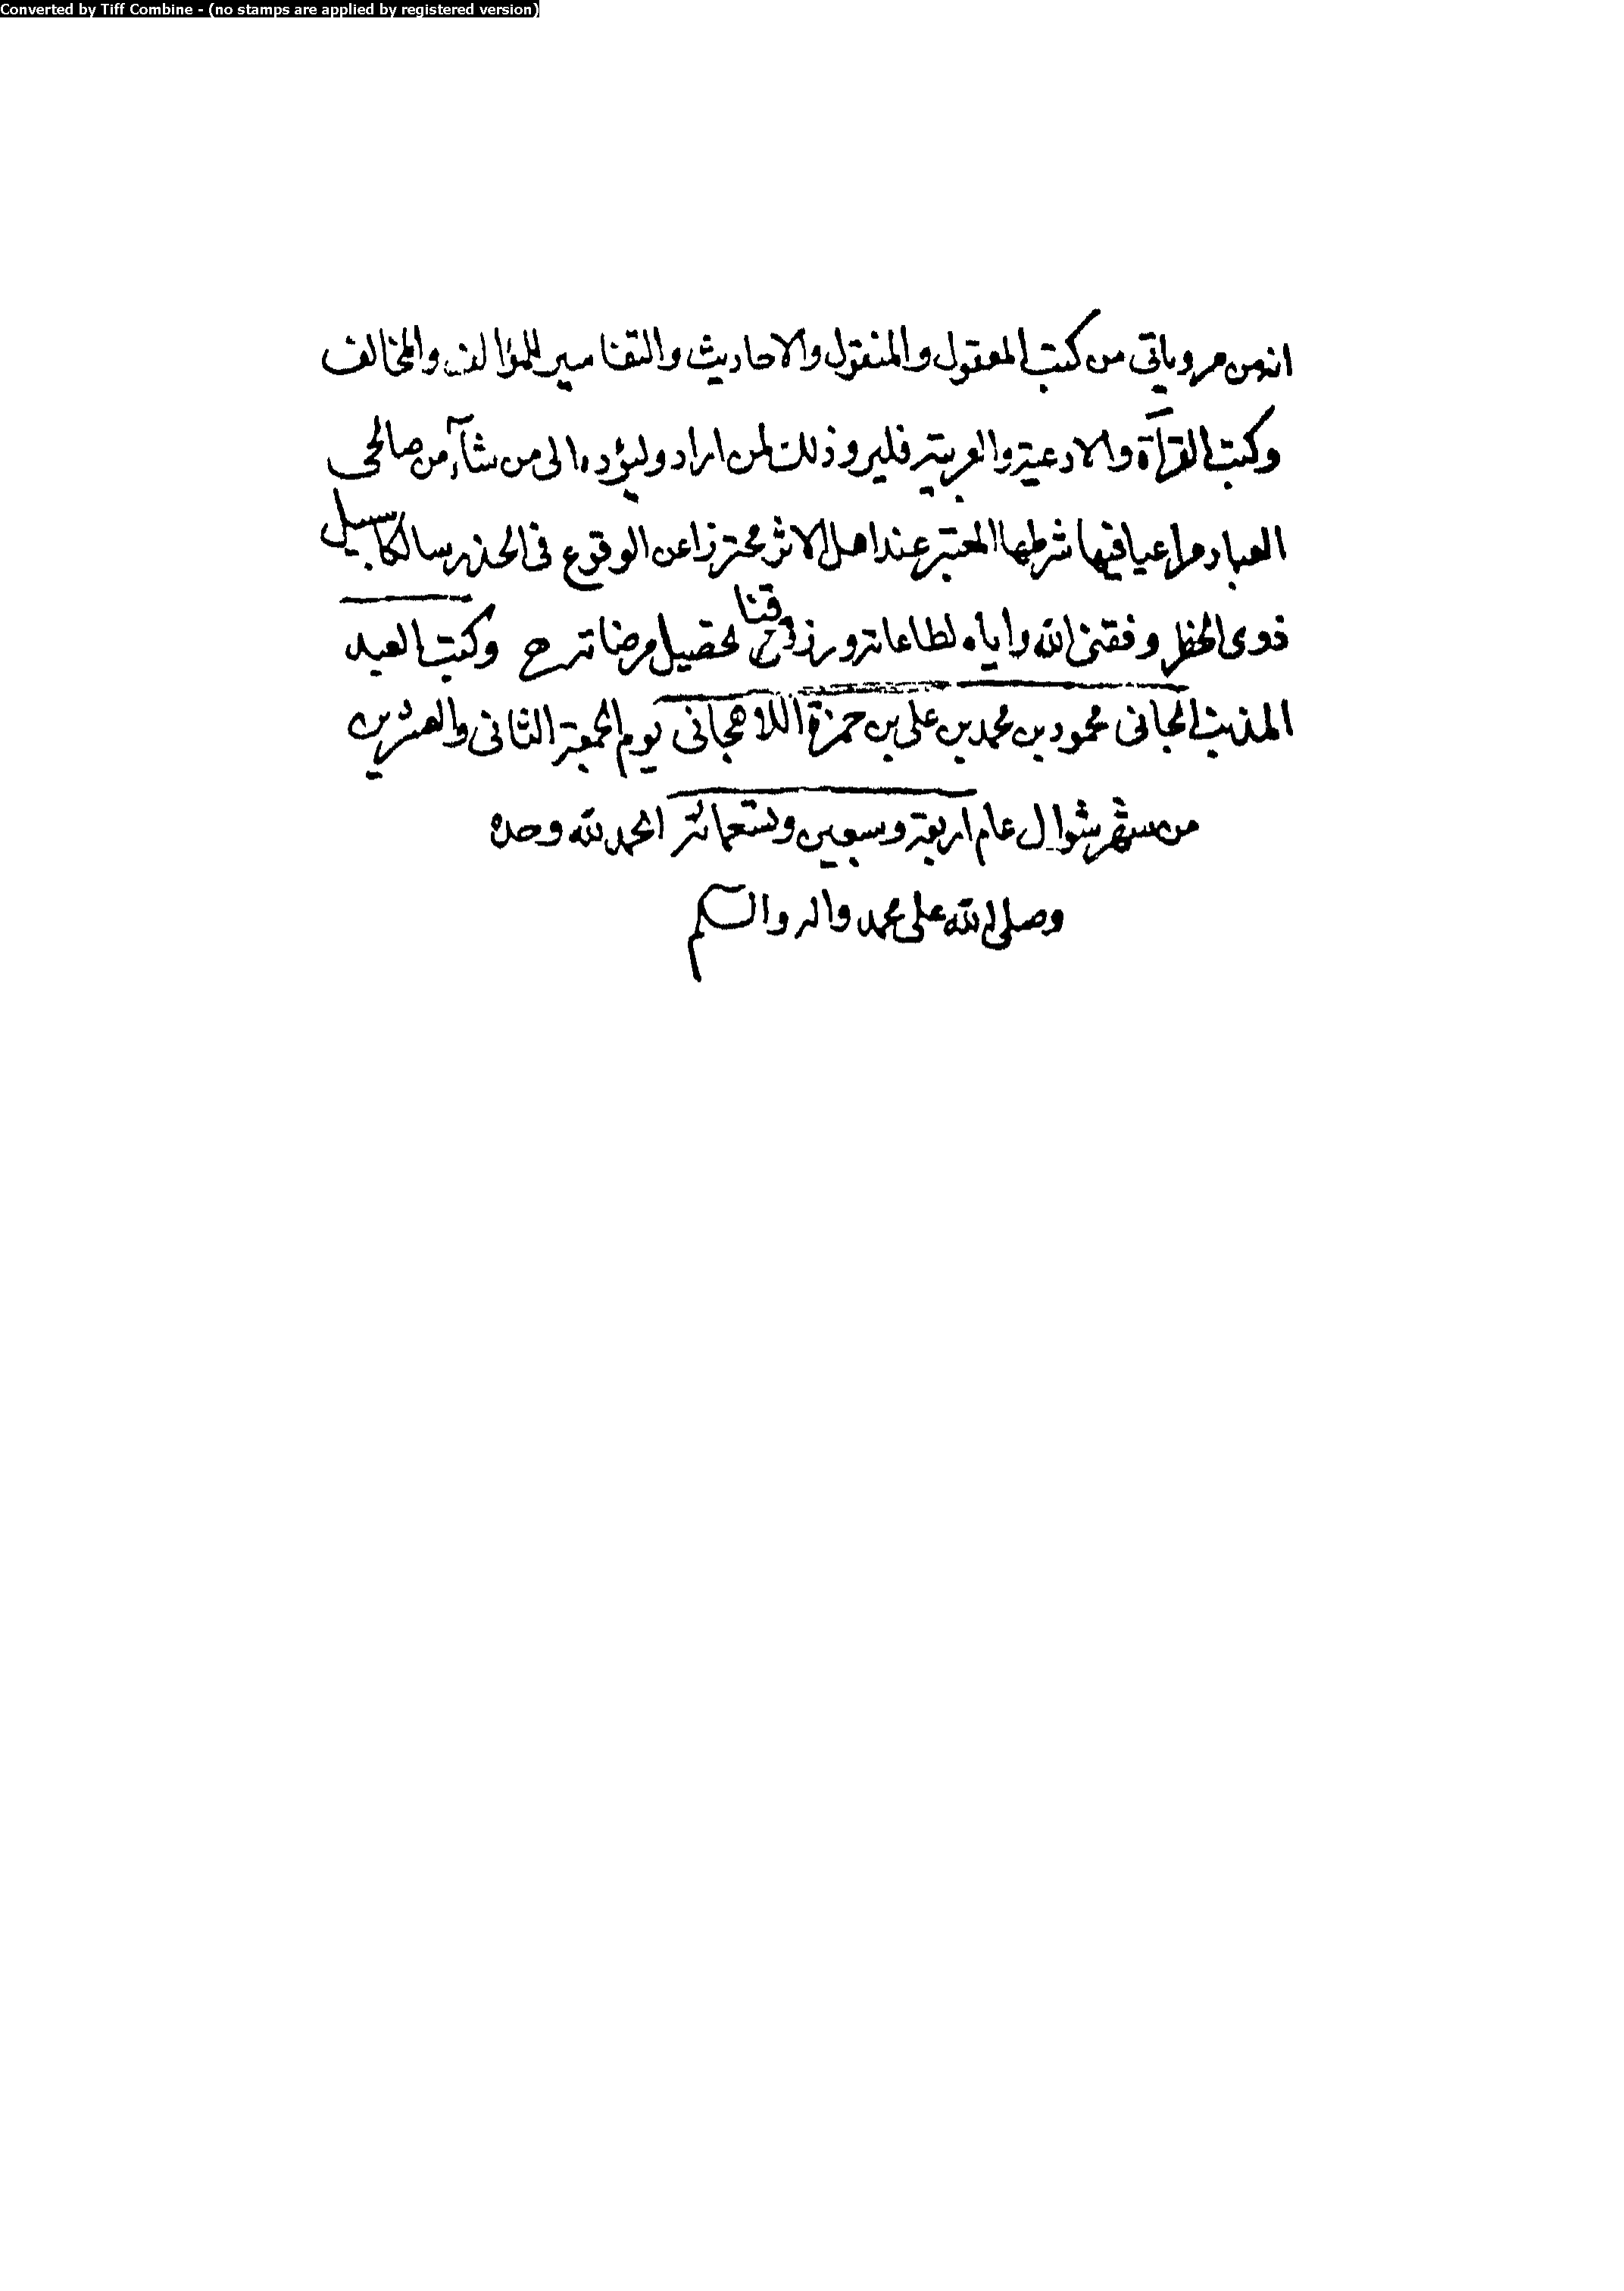 Converted by Tiff Combine - (no stamps are applied by registered version)
انه من مروياتي من كتب المعقول والمنقول والاحاديث والتفاسير للمؤالف والمخالف
وكتب القرآءة والادعية والعربية فليرو ذلك لمن اراد وليؤده الى من شآء من صالحى
العباد مراعيا فيها شرطها المعتبر عند اهل الاثر محترزا عن الوقوع فى الحذر سالكا سبيل
ذوى الحظر وفقنى الله واياه لطاعاته ورزقنا لتحصيل مرضاته وكتب العبد
المذنب الجانى محمود بن محمد بن على بن حمزة اللاهجانى يوم الجمعة الثانى والعشرين
من شهر شوال عام اربعة وسبعين وتسعمائة الحمد لله وحده
وصلى الله على محمد واله والسلم